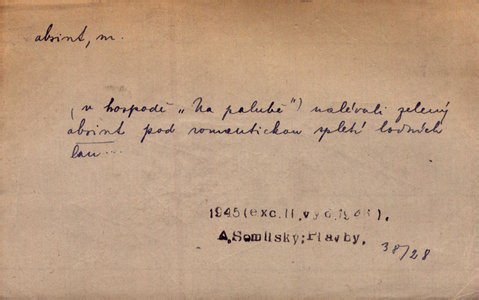 absint, m.
(v hospodě „Na palubě") nalévali zelený
absint pod romantickou spletí lodních
lan...
1945(exc.II.vyd.1946).
A.Semilský:Plavby.
38/28